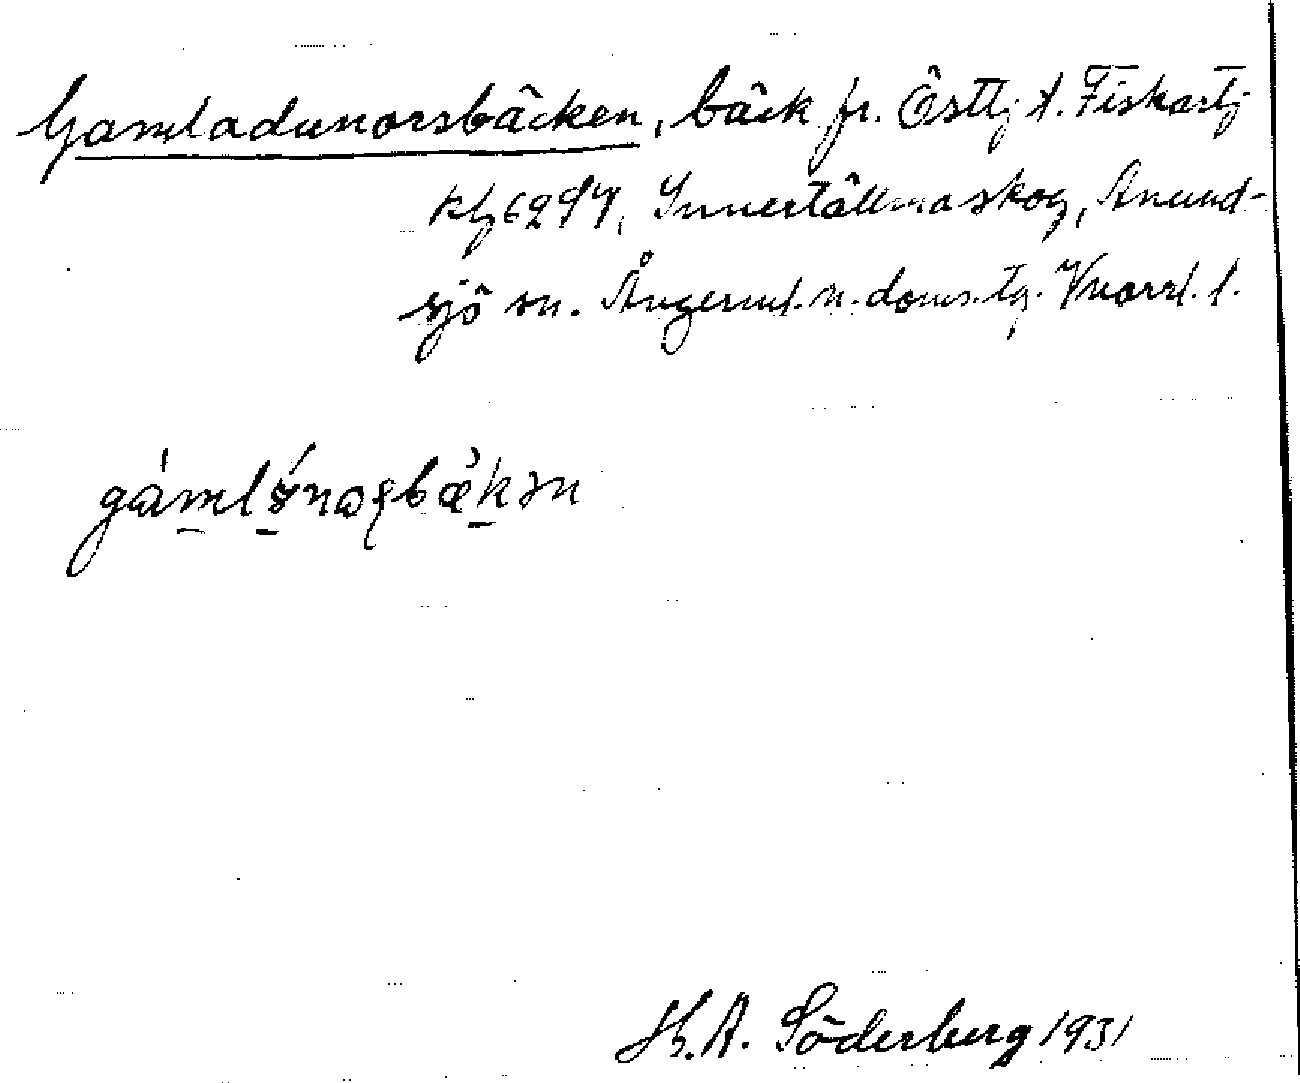 Gamladunorsbäcken, bäck fr. Östtj t. Fiskartj
kbl 6294, Innertällmoskog, Anund-
sjö sn. Ångerml. n. doms. tg. Vnorrl. l.
H. A. Söderberg 1931